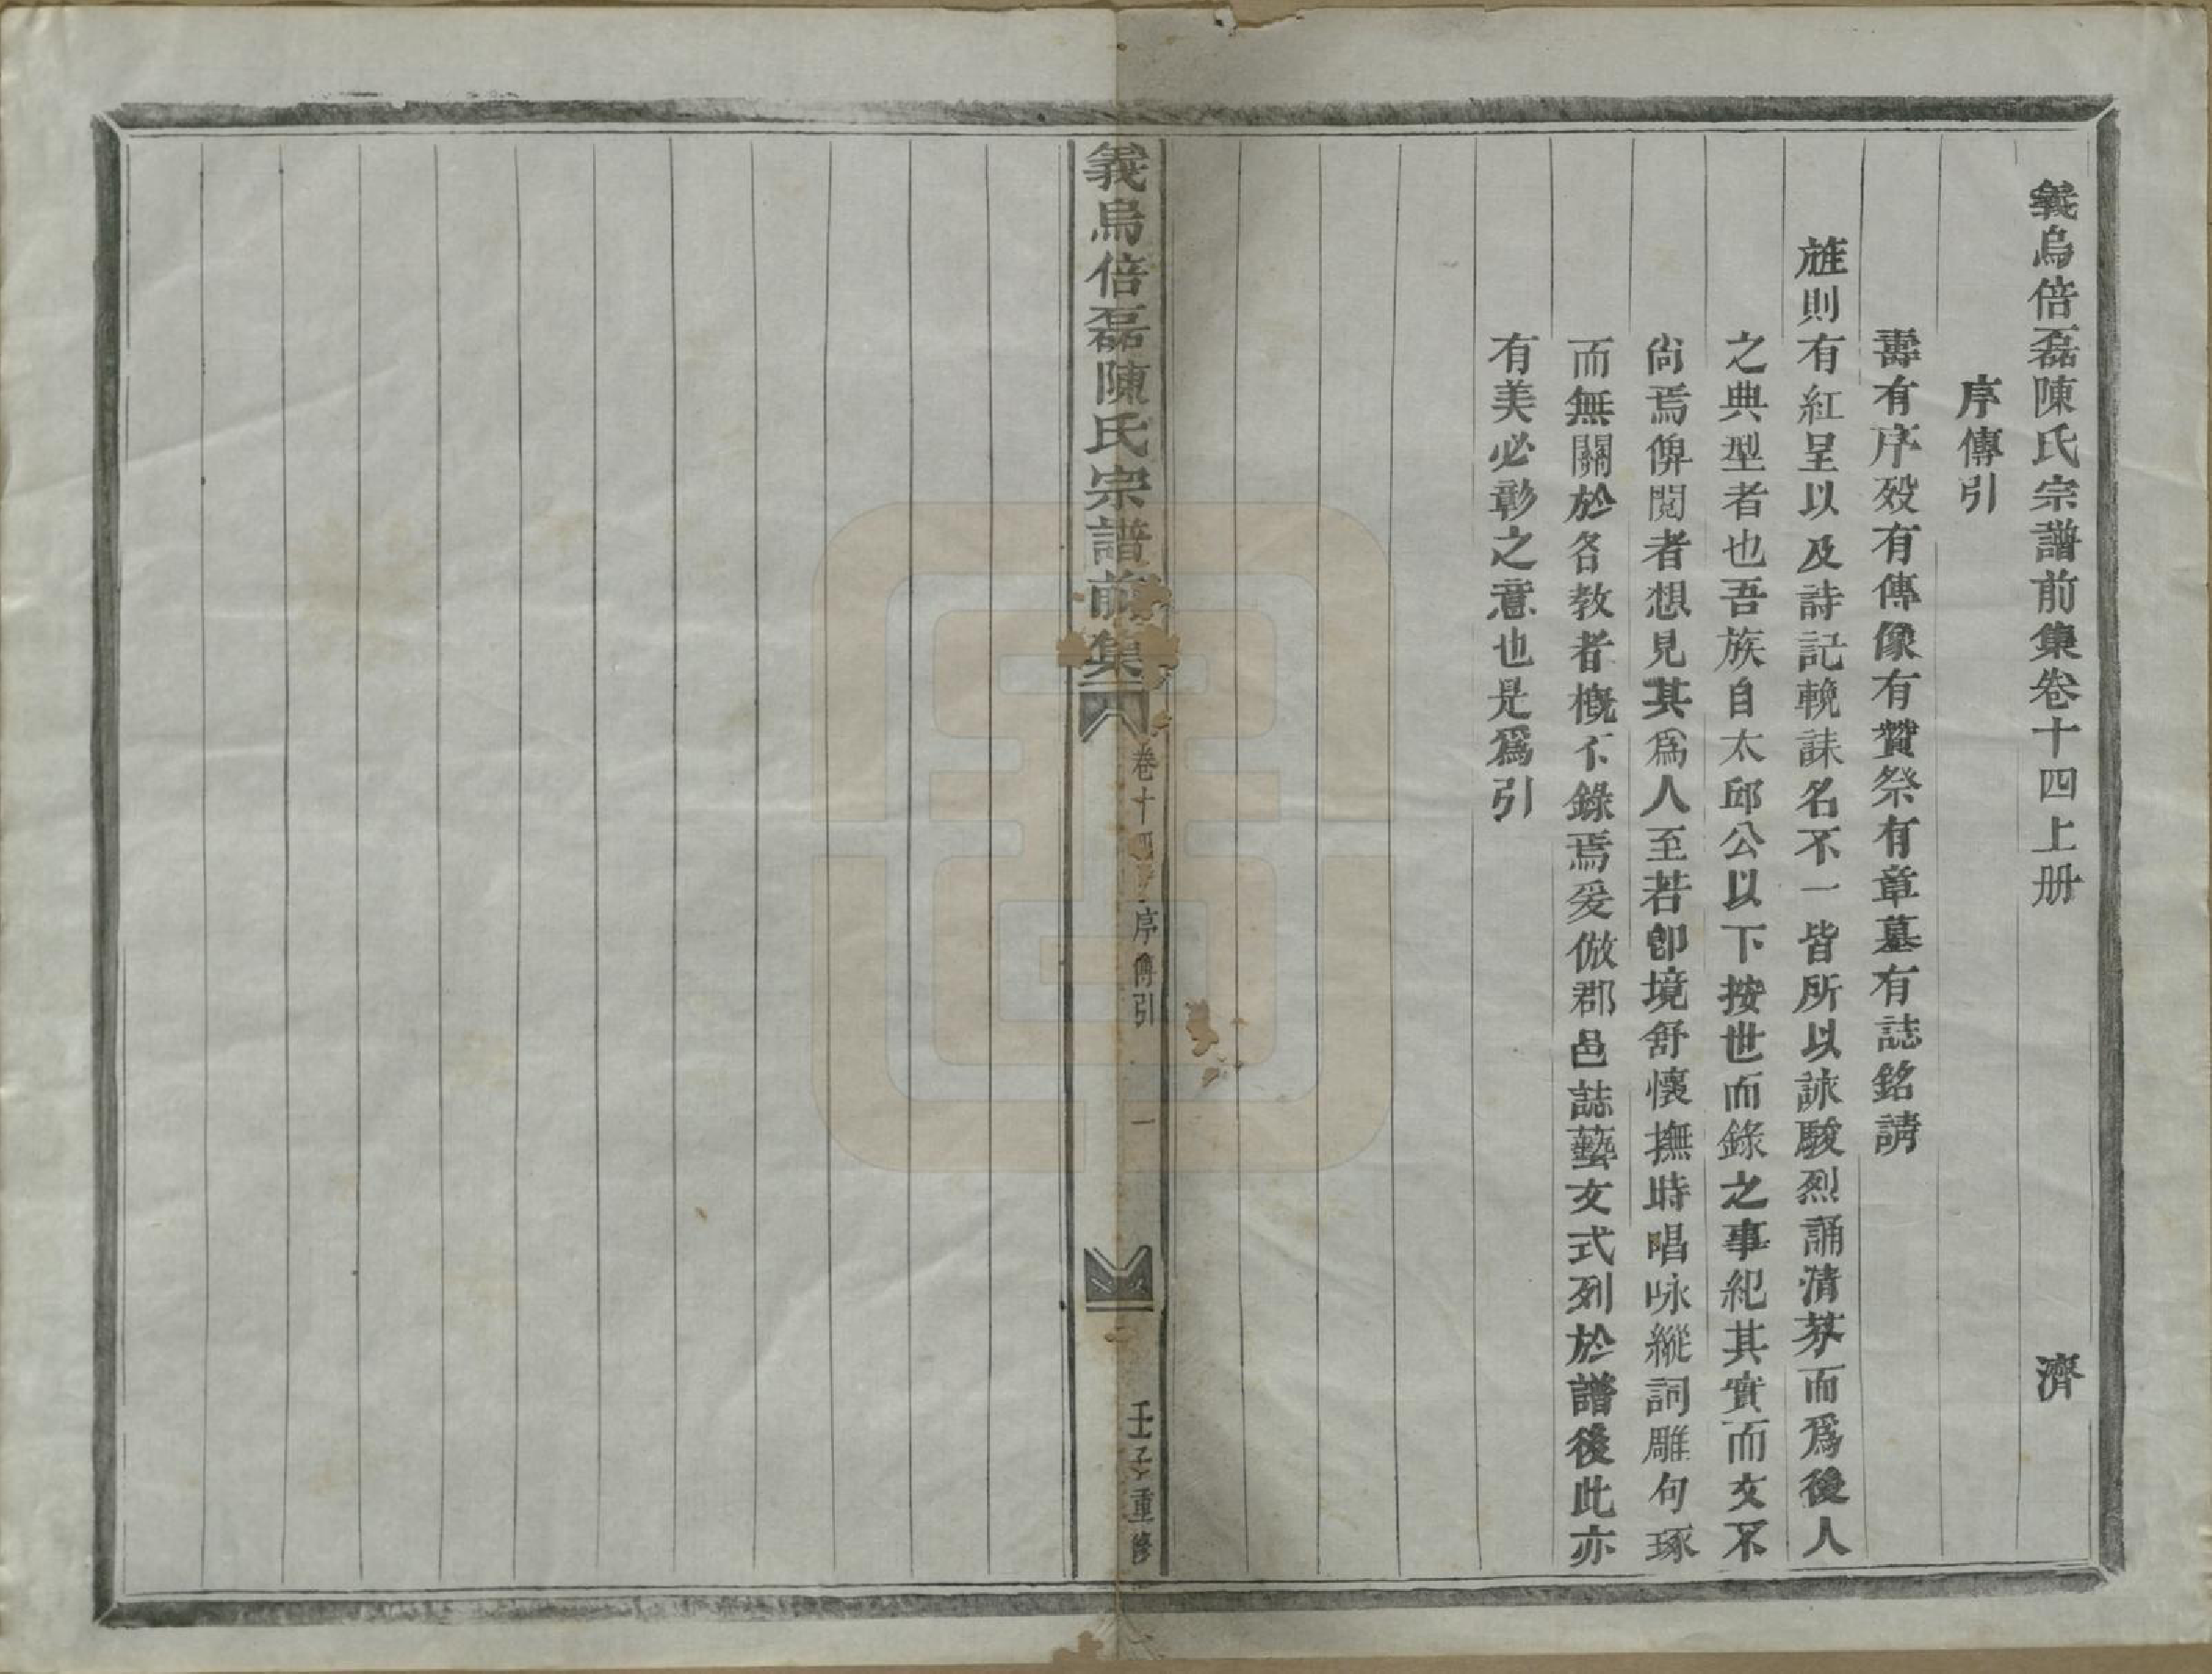 義烏倍磊陳氏宗譜前集卷十四上册 濟
序傳引
壽有序殁有傳像有贊祭有章墓有誌銘請
旌則有紅呈以及詩記輓誄名不一皆所以詠駿烈誦清芬而爲後人
之典型者也吾族自太邱公以下按世而錄之事紀其實而文不
尙焉俾閱者想見其爲人至若卽境舒懷撫時唱咏縱詞雕句琢
而無關於名教者槪不錄焉爰倣郡邑誌藝文式列於譜後此亦
有美必彰之意也是爲引
義烏倍磊陳氏宗譜前集 卷十四 序傳引 一 壬子重修